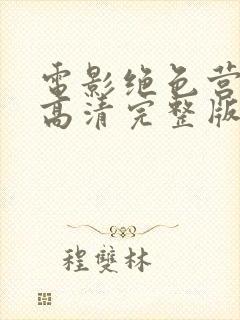 電影绝色营
高清完整版
程雙林